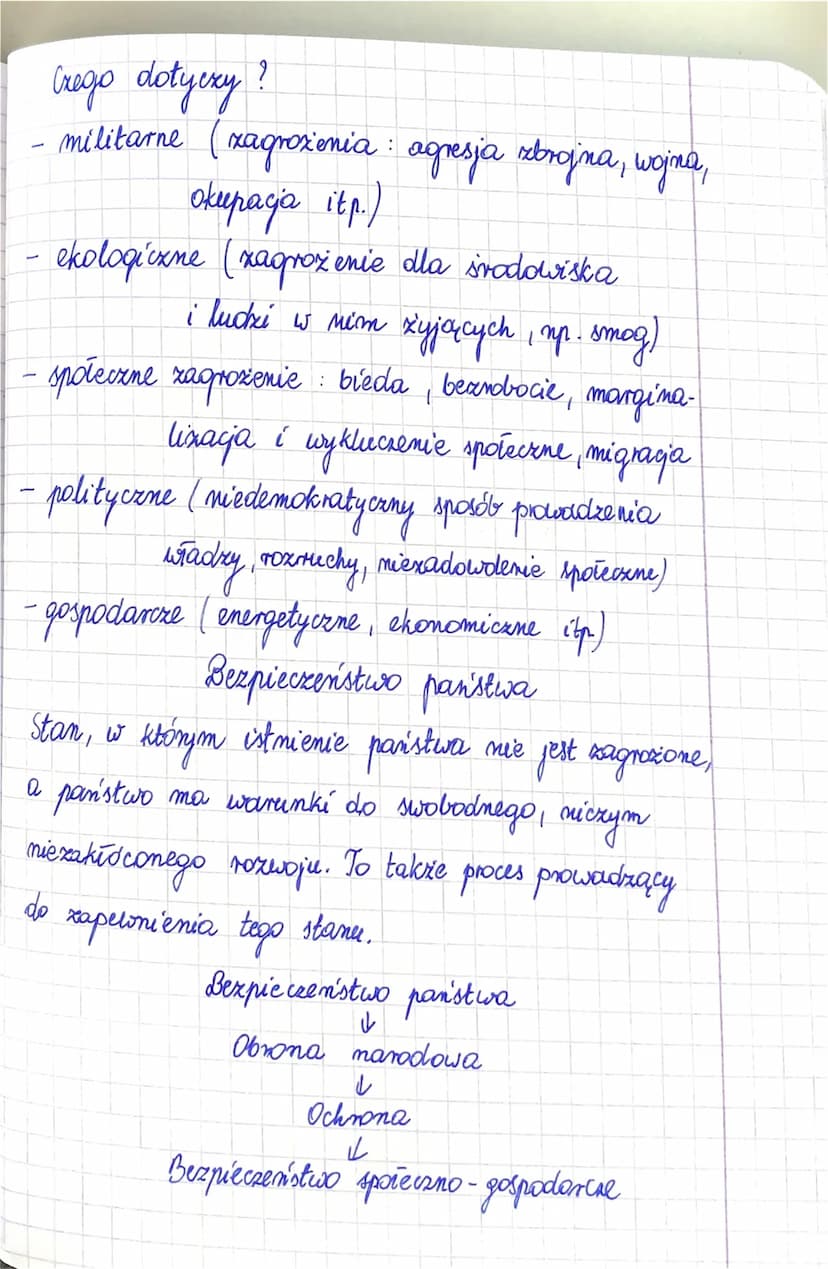 Czego dotyczy?
- militarne (zagrożenia: agresja zbrojna, wojna,
okupacja itp.)
- ekologiczne (zagrożenie dla środowiska
i ludzi w nim żyjących, np. smog)
- społeczne zagrożenie: bieda, bezrobocie, margina-
lizacja i wykluczenie społeczne, migracja
- polityczne (niedemokratyczny sposób prowadzenia
władzy, rozruchy, niezadowolenie społeczne)
- gospodarcze (energetyczne, ekonomiczne itp)
Bezpieczeństwo państwa
Stan, w którym istnienie państwa nie jest zagrożone,
a państwo ma warunki do swobodnego, niczym
niezakłóconego rozwoju. To także proces prowadzący
do zapewnienia tego stanu.
Bezpieczeństwo państwa
↓
Obrona narodowa
↓
Ochrona
↓
Bezpieczeństwo społeczno-gospodarcze